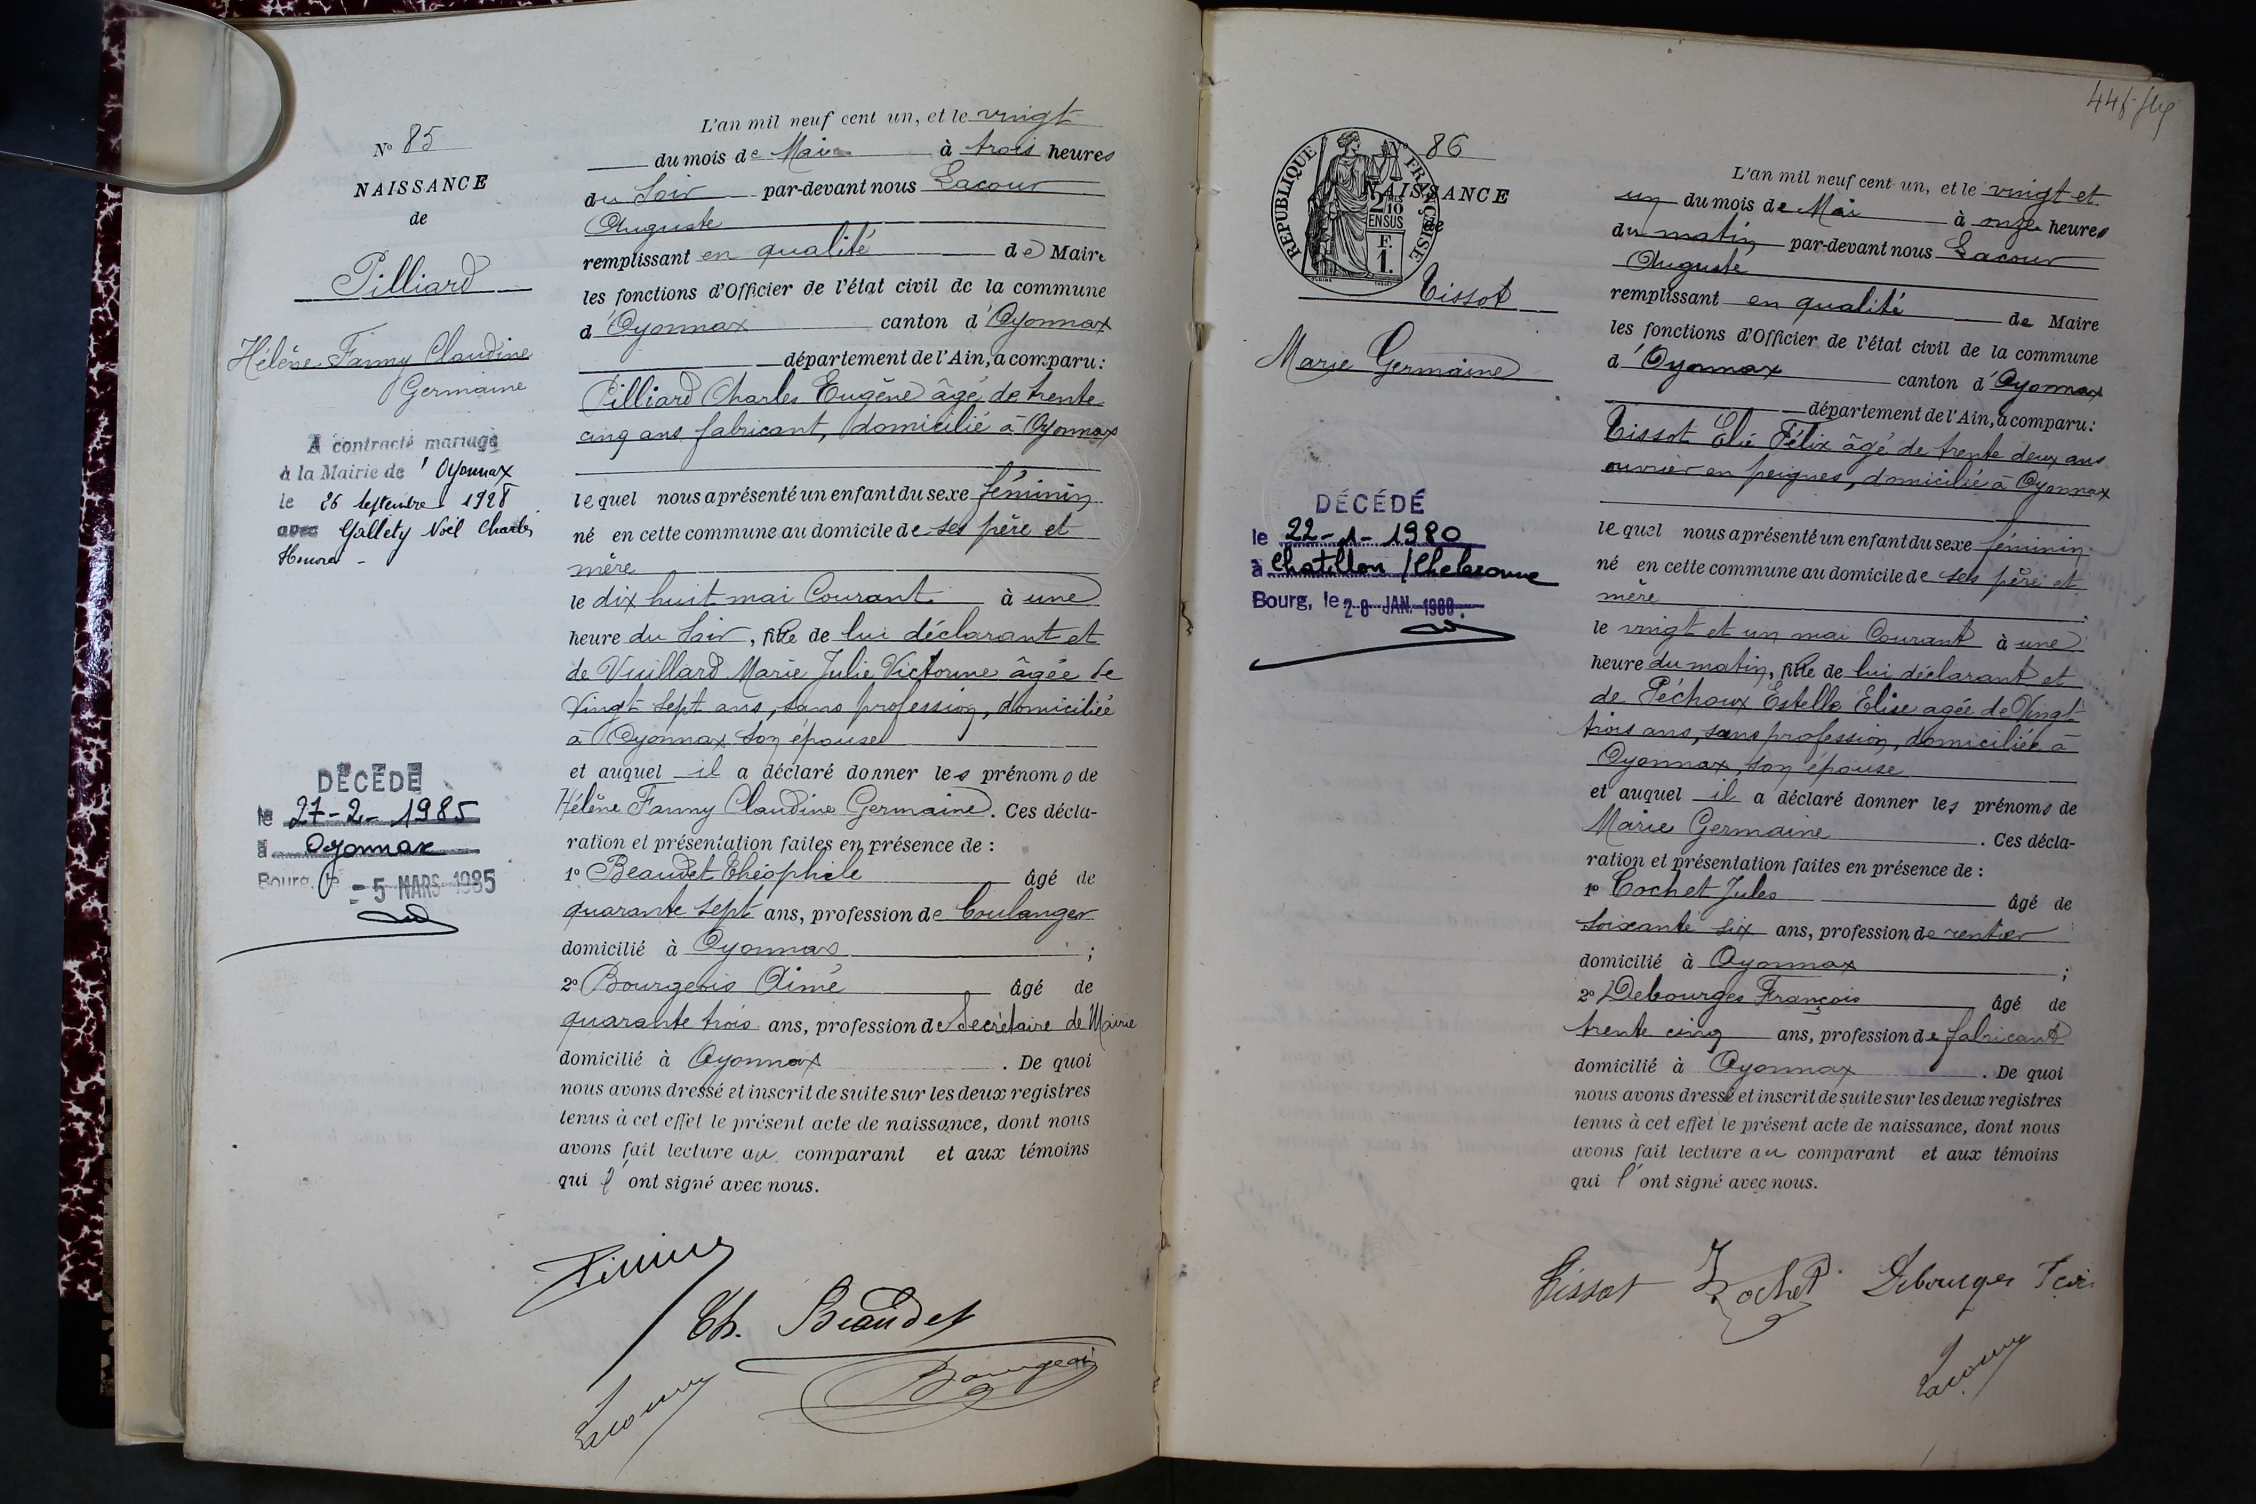 N° 85
NAISSANCE
de
Pilliard
Hélène Fanny Claudine
Germaine
A contracté mariage
à la Mairie de 'Oyonnax
le 26 septembre 1928
avec Gallety Noël Charles
Honoré -
DÉCÉDÉ
le 27-2-1985
à Oyonnax
Bourg, le - 5 MARS 1985
L'an mil neuf cent un, et le vingt
du mois de Mai à trois heures
du soir par-devant nous Lacour
Auguste
remplissant en qualité de Maire
les fonctions d'Officier de l'état civil de la commune
d'Oyonnax canton d'Oyonnax
département de l'Ain, a comparu :
Pilliard Charles Eugène âgé de trente
cinq ans fabricant, domicilié à Oyonnax
lequel nous a présenté un enfant du sexe féminin
né en cette commune au domicile de ses père et
mère
le dix huit mai Courant à une
heure du soir, fille de lui déclarant et
de Vuillard Marie Julie Victorine âgée de
Vingt sept ans, sans profession, domiciliée
à Oyonnax son épouse
et auquel il a déclaré donner les prénoms de
Hélène Fanny Claudine Germaine. Ces décla-
ration et présentation faites en présence de :
1° Beaudet Théophile âgé de
quarante sept ans, profession de boulanger
domicilié à Oyonnax ;
2° Bourgeois Aimé âgé de
quarante trois ans, profession de Secrétaire de Mairie
domicilié à Oyonnax . De quoi
nous avons dressé et inscrit de suite sur les deux registres
tenus à cet effet le présent acte de naissance, dont nous
avons fait lecture au comparant et aux témoins
qui l'ont signé avec nous.
Th. Beaudet
Lacour
Bourgeois
86
RÉPUBLIQUE FRANÇAISE
2/10 EN SUS
F. 1.
NAISSANCE
de
Tissot
Marie Germaine
DÉCÉDÉ
le 22-1-1980
à Chatillon / Chalaronne
Bourg, le 28 JAN. 1980
L'an mil neuf cent un, et le vingt et
un du mois de Mai à onze heures
du matin par-devant nous Lacour
Auguste
remplissant en qualité de Maire
les fonctions d'Officier de l'état civil de la commune
d'Oyonnax canton d'Oyonnax
département de l'Ain, a comparu :
Tissot Elie Félix âgé de trente deux ans
ouvrier en peignes, domicilié à Oyonnax
lequel nous a présenté un enfant du sexe féminin
né en cette commune au domicile de ses père et
mère
le vingt et un mai Courant à une
heure du matin, fille de lui déclarant et
de Péchoux Estelle Elise agée de Vingt
trois ans, sans profession, domiciliée à
Oyonnax, son épouse
et auquel il a déclaré donner les prénoms de
Marie Germaine . Ces décla-
ration et présentation faites en présence de :
1° Cochet Jules âgé de
soixante six ans, profession de rentier
domicilié à Oyonnax ;
2° Debourges François âgé de
trente cinq ans, profession de fabricant
domicilié à Oyonnax . De quoi
nous avons dressé et inscrit de suite sur les deux registres
tenus à cet effet le présent acte de naissance, dont nous
avons fait lecture au comparant et aux témoins
qui l'ont signé avec nous.
Tissot J Cochet Debourges Fçois
Lacour